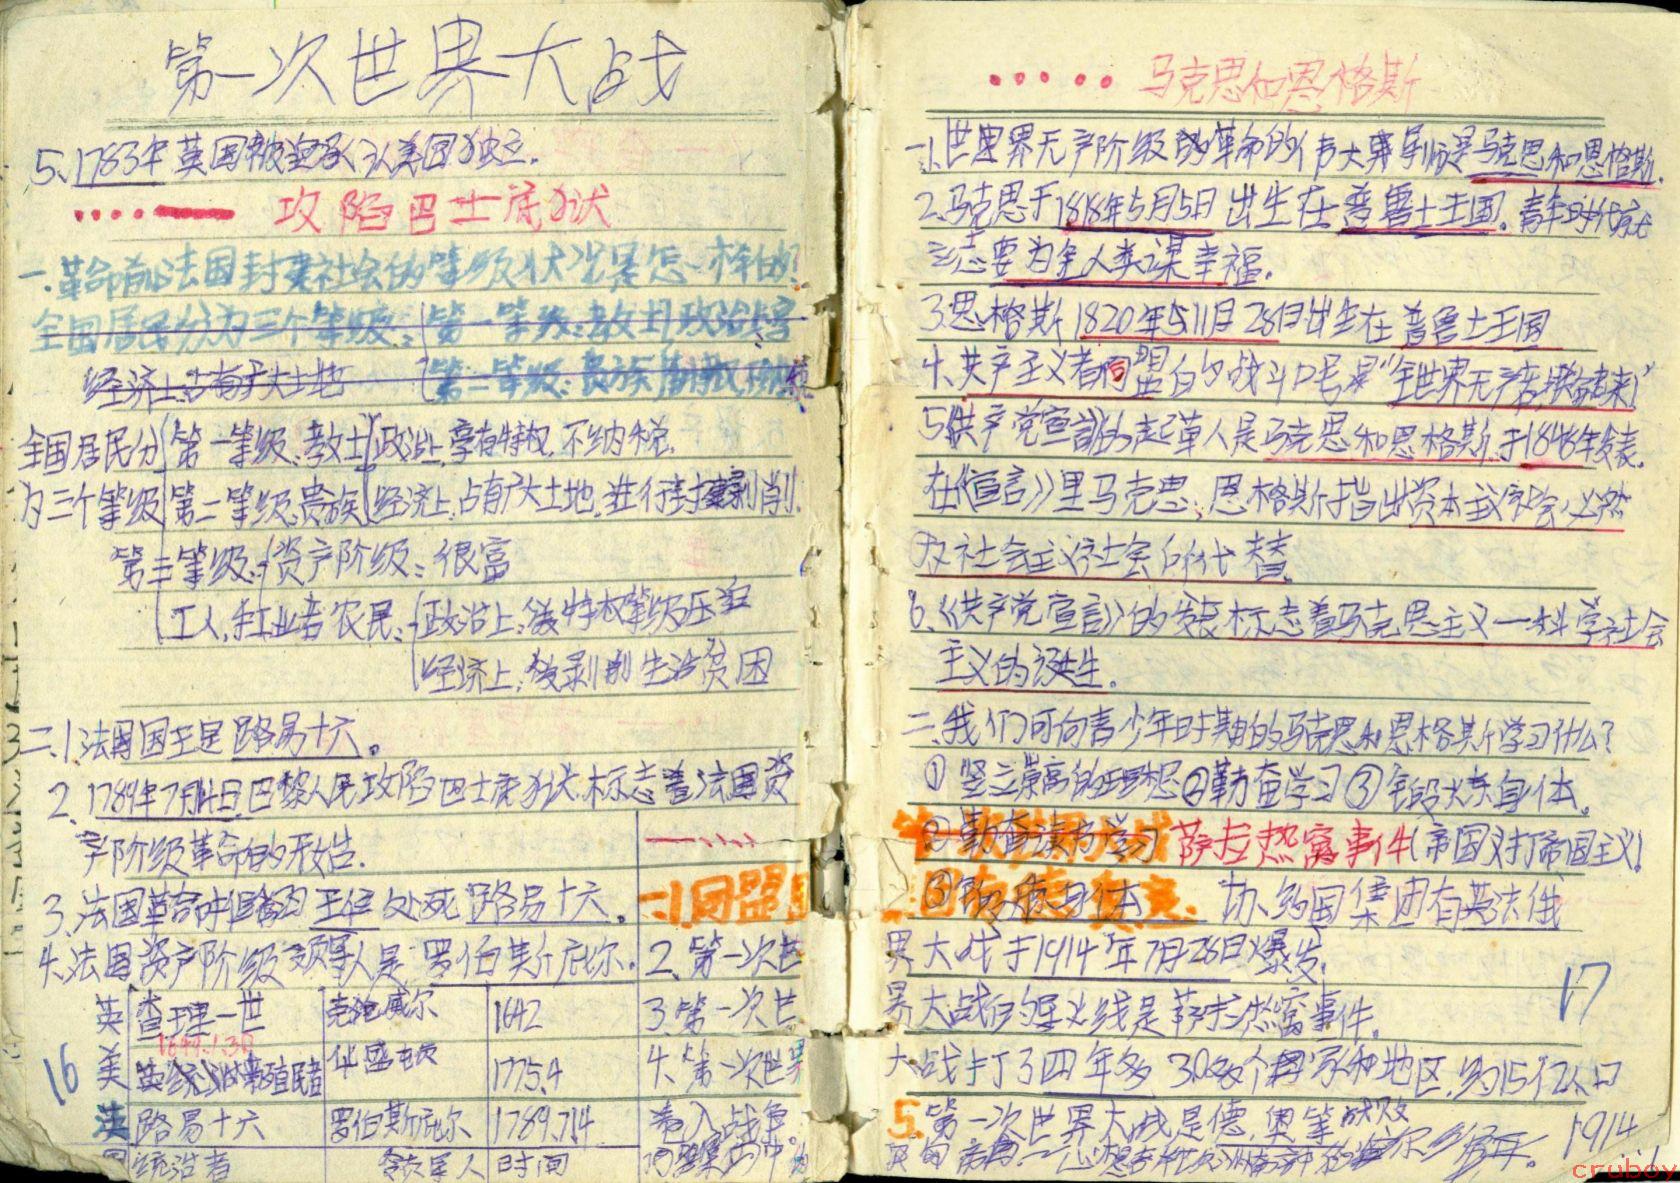 第一次世界大战
5、1783年英国被迫承认美国独立。
攻陷巴士底狱
一.革命前法国封建社会的等级状况是怎一样的?
全国居民分为三个等级:第一等级:教士 政治上享
经济上占有广大土地 第二等级:贵族
全国居民分 第一等级:教士 政治上,享有特权,不纳税.
为三个等级 第二等级:贵族 经济上,占有广大土地,进行封建剥削.
第三等级: 资产阶级:很富
工人,手工业者农民: 政治上:受特权等级压迫
经济上:受剥削生活贫困
二.1.法国国王是路易十六。
2、1789年7月14日,巴黎人民攻陷巴士底狱,标志着法国资
产阶级革命的开始.
3、法国革命中 王位 处死 路易十六。
4、法国资产阶级领导人是罗伯斯庇尔.
英 查理一世 克伦威尔 1642
1649.1.30
美 英 殖民者 华盛顿 1775.4
法 路易十六 罗伯斯庇尔 1789.7.14
国 统治者 领导人 时间
16
一.1.同盟国
2、第一次世
3.第一次世
4.第一次世界
卷入战争
马克思和恩格斯
一、1.世界无产阶级的革命的伟大导师是马克思和恩格斯.
2.马克思于1818年5月5日出生在普鲁士王国。青年时代就
立志要为全人类谋幸福.
3.恩格斯1820年11月28日出生在普鲁士王国
4.共产主义者同盟的战斗口号是“全世界无产者,联合起来!”
5《共产党宣言》的起草人是马克思和恩格斯.于1848年发表.
在《宣言》里马克思、恩格斯指出资本主义社会必然
为社会主义社会所代替.
6、《共产党宣言》的发表标志着马克思主义—科学社会
主义的诞生.
二、我们可向青少年时期的马克思和恩格斯学习什么?
①竖立崇高的理想②勤奋学习③锻炼身体.
②勤奋读书学习 萨拉热窝事件(帝国义打帝国主义)
③锻炼身体 协约国集团有英法俄
界大战于1914年7月28日爆发.
界大战的导火线是萨拉热窝事件.
大战打了四年多 30多个国家和地区,约15亿人口
5.第一次世界大战是德、奥等战败
17
1914
cruboy